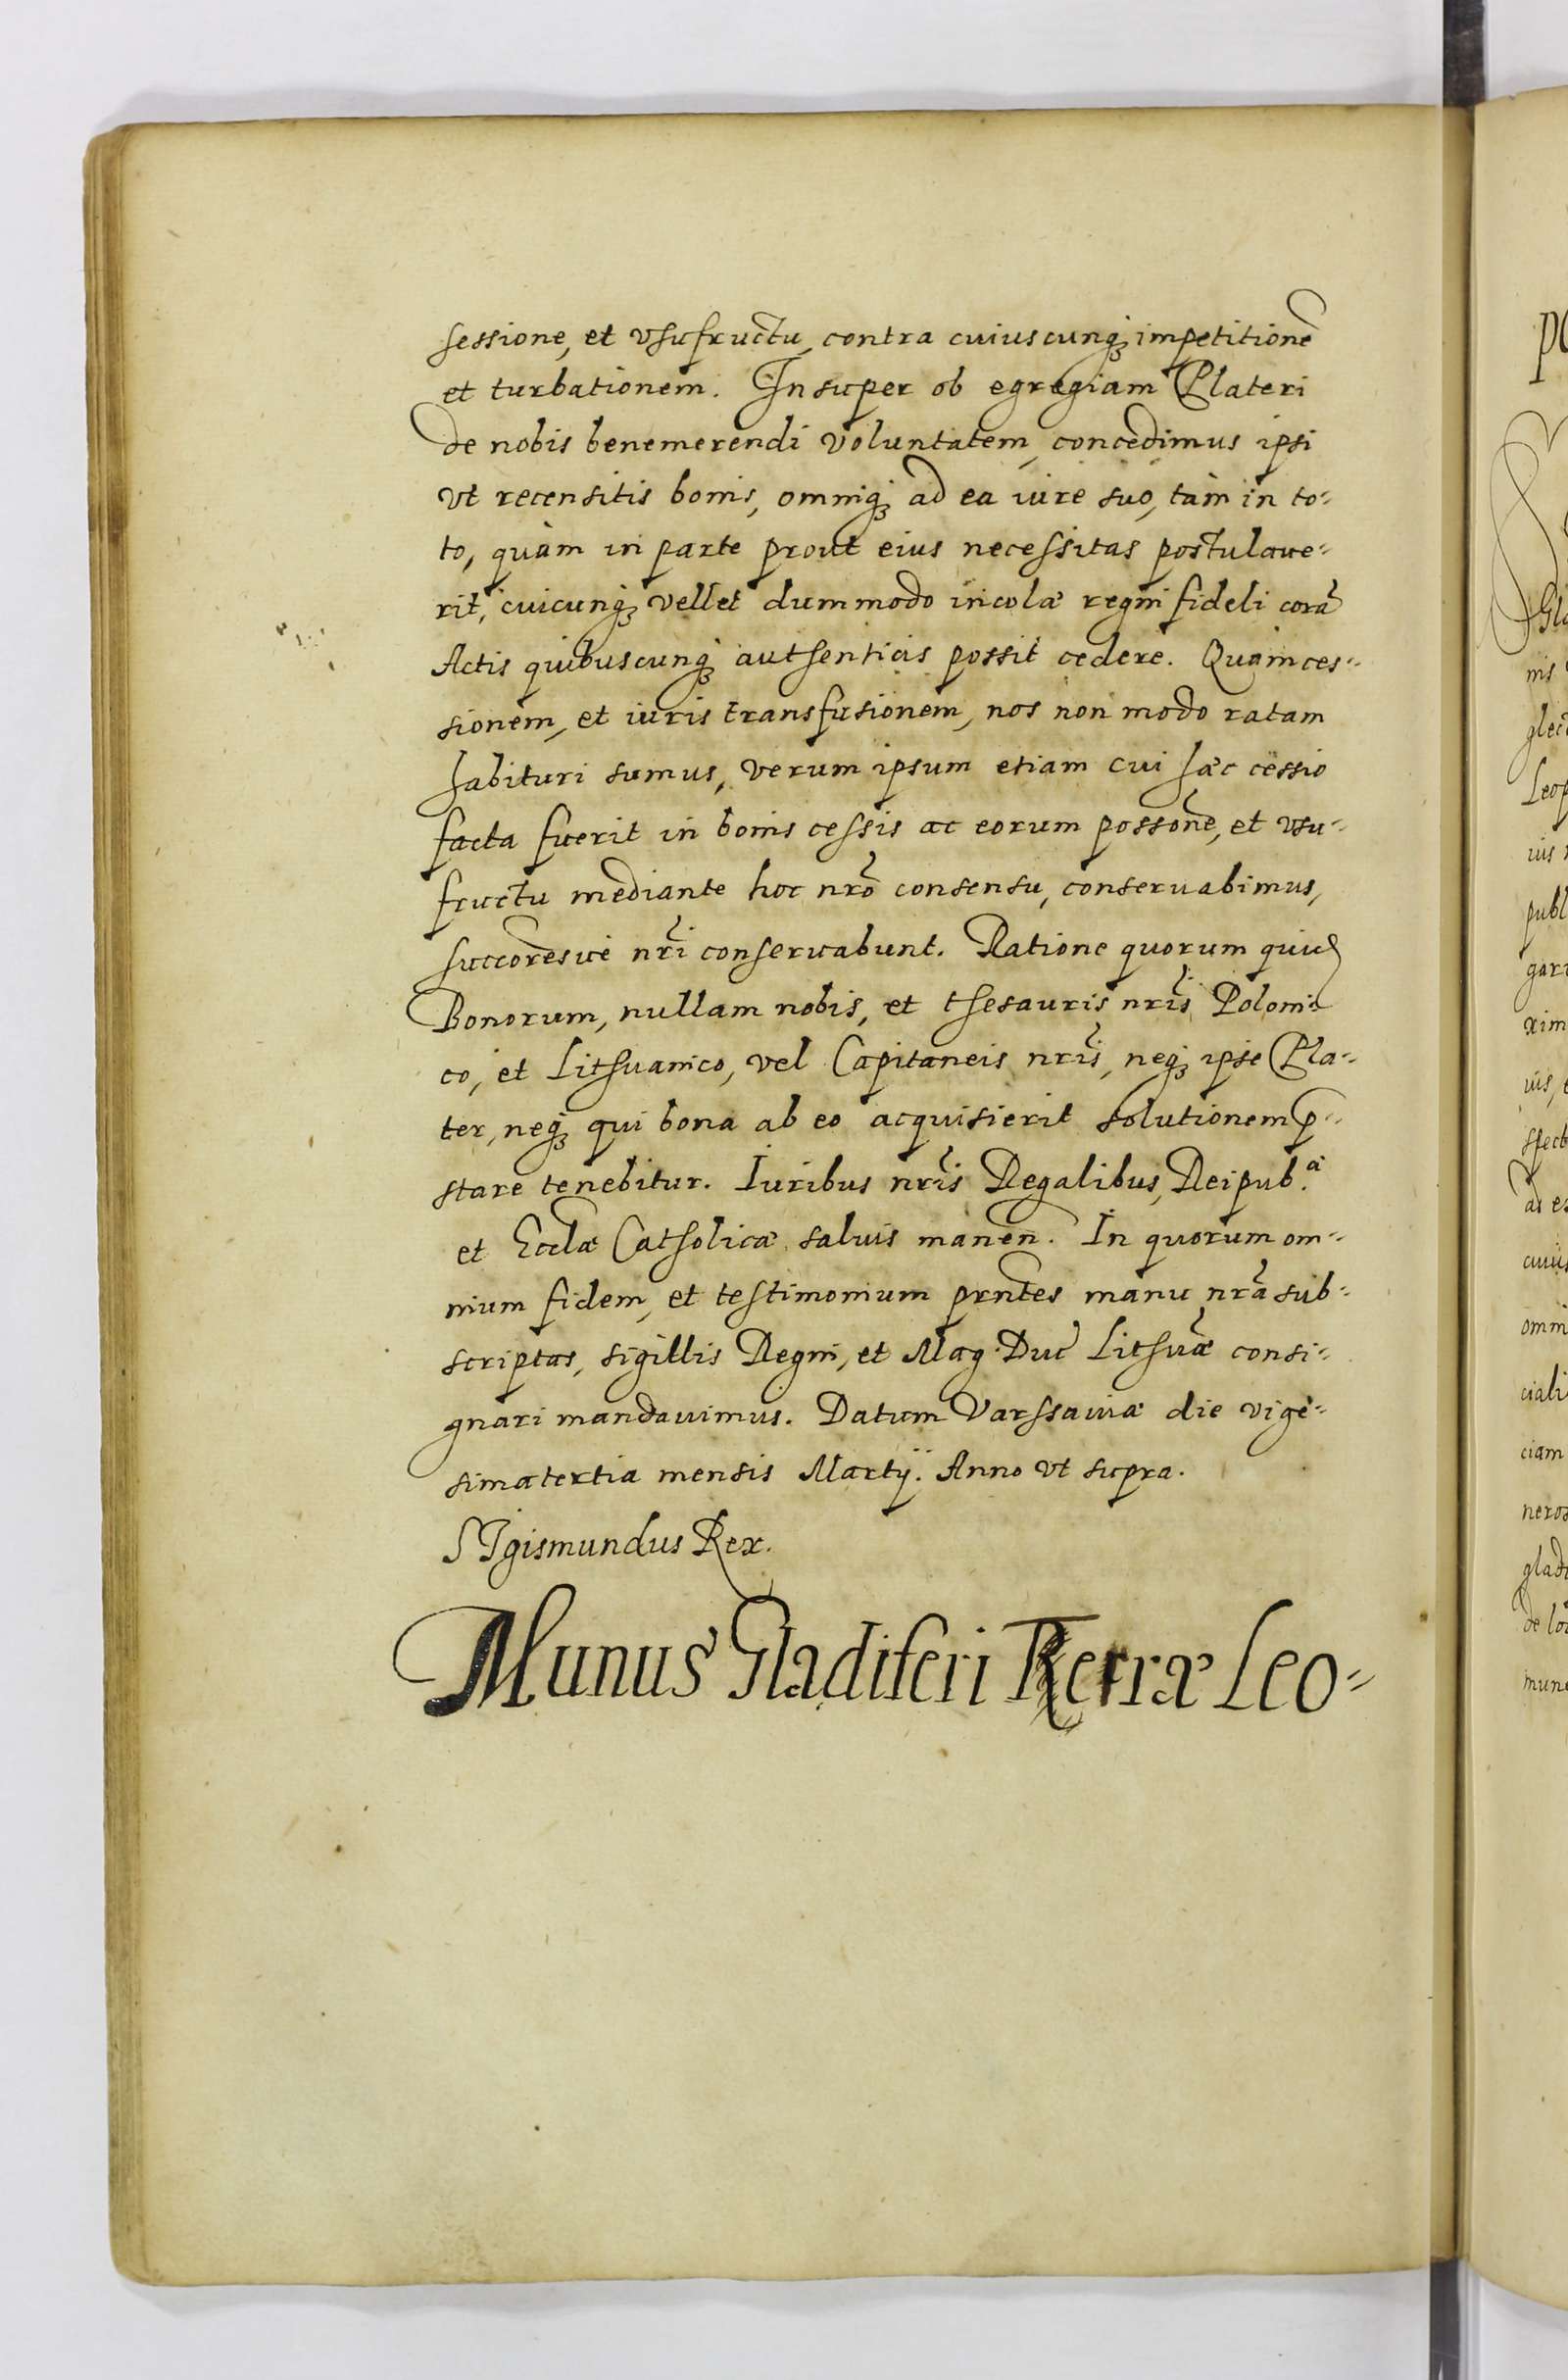 sessione, et vsufructu, contra cuiuscunq3 impetitionē
et turbationem. Insuper ob egregiam Plateri
de nobis benemerendi voluntatem, concedimus ipsi
vt recensitis bonis, omniq3 ad ea iure suo, tàm in to-
to, quàm in parte prout eius necessitas postulaue-
rit, cuicunq3 vellet dummodo incolæ regni fideli corā
Actis quibuscunq3 authenticis possit cedere. Quam ces-
sionem, et iuris transfusionem, nos non modo ratam
habituri sumus, verum ipsum etiam cui hæc cessio
facta fuerit in bonis cessis ac eorum possōne, et vsu-
fructu mediante hoc nrō consensu, conseruabimus,
succoresue nrī conseruabunt. Ratione quorum quid
Bonorum, nullam nobis, et thesauris nrīs Poloni-
co, et Lithuanico, vel Capitaneis nrīs, neq3 ipse Pla-
ter, neq3 qui bona ab eo acquisierit solutionem p-
stare tenebitur. Iuribus nrīs Regalibus, Reipub.ͣ
et Ecclæ Catholicæ saluis manēn. In quorum om-
nium fidem, et testimonium prntēs manu nrā sub-
scriptas, sigillis Regni, et Mag. Duc̄ Lithuæ consi-
gnari mandauimus. Datum Varssauiæ die vige-
simatertia mensis Martij. Anno vt supra.
SIgismundus Rex.
Munus Gladiferi Terræ Leo-